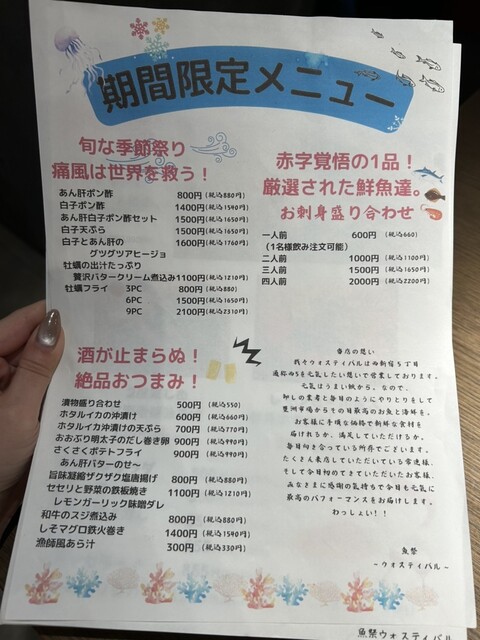 期間限定メニュー
旬な季節祭り
痛風は世界を救う！
あん肝ポン酢 800円(税込880円)
白子ポン酢 1400円(税込1540円)
あん肝白子ポン酢セット 1500円(税込1650円)
白子天ぷら 1500円(税込1650円)
白子とあん肝の 1600円(税込1760円)
グツグツアヒージョ
牡蠣の出汁たっぷり
贅沢バタークリーム煮込み1100円(税込1210円)
牡蠣フライ 3PC 800円(税込880)
6PC 1500円(税込1650円)
9PC 2100円(税込2310円)
赤字覚悟の1品！
厳選された鮮魚達。
お刺身盛り合わせ
一人前 600円 (税込660)
(1名様飲み注文可能)
二人前 1000円 (税込1100円)
三人前 1500円 (税込1650円)
四人前 2000円 (税込2200円)
酒が止まらぬ！
絶品おつまみ！
漬物盛り合わせ 500円(税込550)
ホタルイカの沖漬け 600円(税込660円)
ホタルイカ沖漬けの天ぷら 700円(税込770円)
おおぶり明太子のだし巻き卵 900円(税込990円)
さくさくポテトフライ 900円(税込990円)
あん肝バターのせ〜
旨味凝縮ザクザク塩唐揚げ 800円(税込880円)
セセリと野菜の鉄板焼き 1100円(税込1210円)
レモンガーリック味噌ダレ
和牛のスジ煮込み 800円(税込880円)
しそマグロ鉄火巻き 1400円(税込1540円)
漁師風あら汁 300円(税込330円)
当店の想い
我々ウォスティバルは西新宿５丁目
通称西5を元気したい想いで営業しております。
元気はうまい飯から。なので、
卸しの業者と毎日のようにやりとりをして
豊洲市場からその日最高のお魚と海鮮を。
お客様に手頃な価格で新鮮な食材を
届けれるか、満足していただけるか。
毎日向き合っている所存でございます。
たくさん来店していただいている常連様、
そして今日初めてきていただいたお客様、
みなさまに感謝の気持ちで今日も元気に
最高のパフォーマンスをお届けします。
わっしょい！！
魚祭
〜ウォスティバル〜
魚祭ウォスティバル